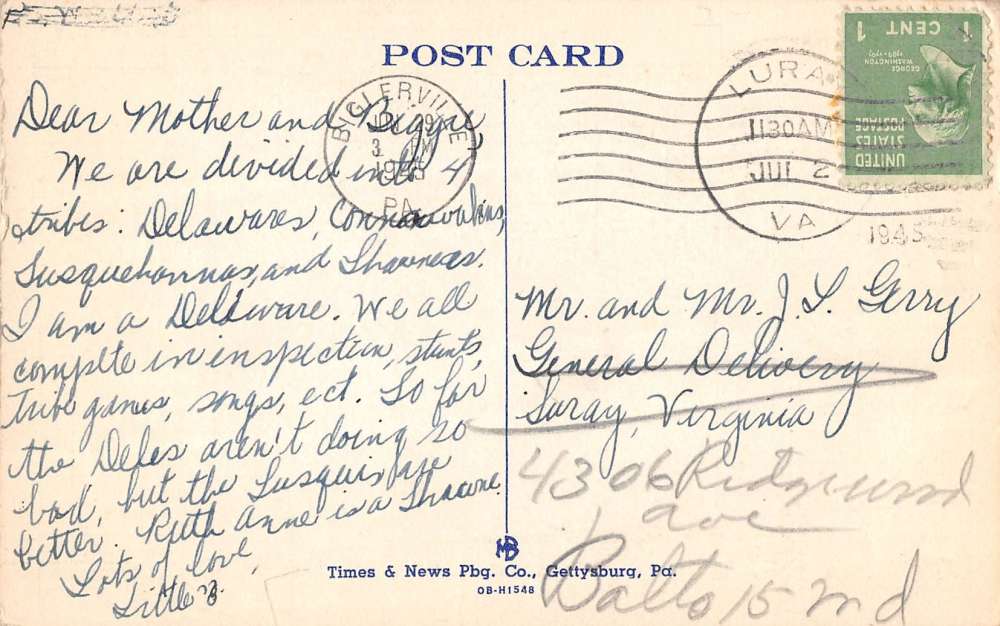 POST CARD
Dear Mother and
We are divided into 4
tribes: Delawares,
Susquehannas, and Shawnees.
I am a Deleware. We all
complete in inspection, stunts,
tribe games, songs, ect. So far
the Deles aren't doing so
bad, but the Susquis are
better. Ruth Anne is a Shawne.
Lots of love,
Little B.
BIGLERVILLE
29
3 PM
1945
PA.
LURAY
1130 AM
JUL 2
VA
1945
1 CENT 1
GEORGE WASHINGTON
1789-1797
UNITED
STATES
POSTAGE
Mr. and Mr. J. L. Gerry
General Delivery
Luray, Virginia
4306 Ridgewood
ave
Balto 15 Md
MB
Times & News Pbg. Co., Gettysburg, Pa.
OB-H1548